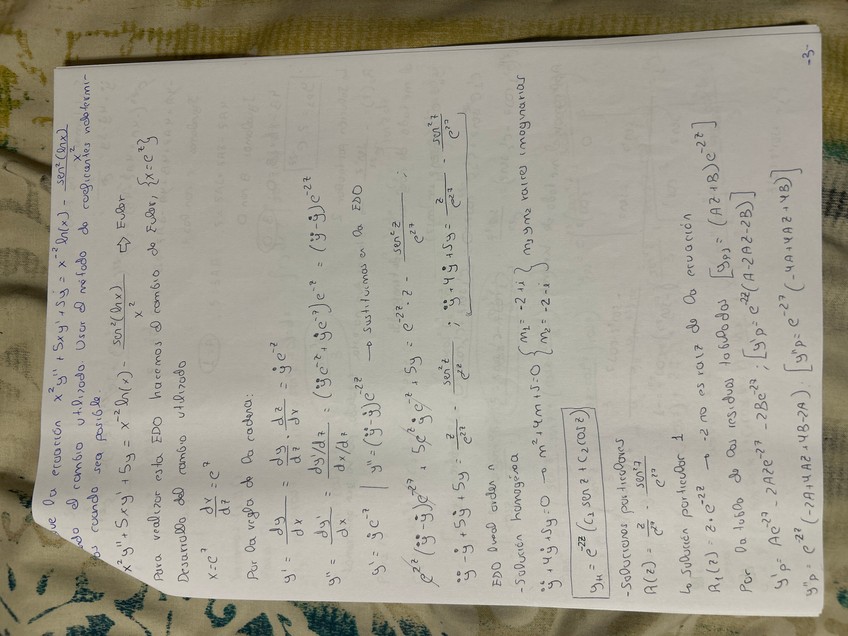 ve la ecuación x²y'' + 5xy' + 5y = x⁻² ln(x) - sen²(lnx)/x²
do el cambio utilizado. Usar el método de coeficientes indetermi-
dos cuando sea posible.
x²y'' + 5xy' + 5y = x⁻² ln(x) - sen²(lnx)/x² ⇨ Euler
Para realizar esta EDO hacemos el cambio de Euler, {x=e^z}
Desarrollo del cambio utilizado
x=e^z dx/dz = e^z
Por la regla de la cadena:
y' = dy/dx = dy/dz · dz/dx = ẏe^-z
y'' = dy'/dx = dy'/dz / dx/dz = (ÿe^-z + ẏe^-z)e^-z = (ÿ-ẏ)e^-2z
y' = ẏe^-z | y'' = (ÿ-ẏ)e^-2z → sustituimos en la EDO
e^2z (ÿ-ẏ)e^-2z + 5e^z ẏe^-z + 5y = e^-2z · z - sen²z/e^2z ;
ÿ-ẏ+5ẏ+5y = z/e^2z - sen²z/e^2z ; ÿ+4ẏ+5y = z/e^2z - sen²z/e^2z
EDO lineal orden n
- Solución homogénea
ÿ+4ẏ+5y=0 → m²+4m+5=0 {m₁ = -2+i m₂ = -2-i} m₁ y m₂ raíces imaginarias
y_H = e^-2z (C₁ sen z + C₂ cos z)
- Soluciones particulares
R(z) = z/e^2z - sen²z/e^2z
↳ Solución particular 1
R₁(z) = z·e^-2z → -2 no es raíz de la ecuación
Por la tabla de los residuos tabulados [y_P1 = (AZ+B)e^-2z]
y'p = Ae^-2z - 2Aze^-2z - 2Be^-2z ; [y'p = e^-2z (A-2AZ-2B)]
y''p = e^-2z (-2A+4AZ+4B-2A) ; [y''p = e^-2z (-4A+4AZ+4B)]
-3-